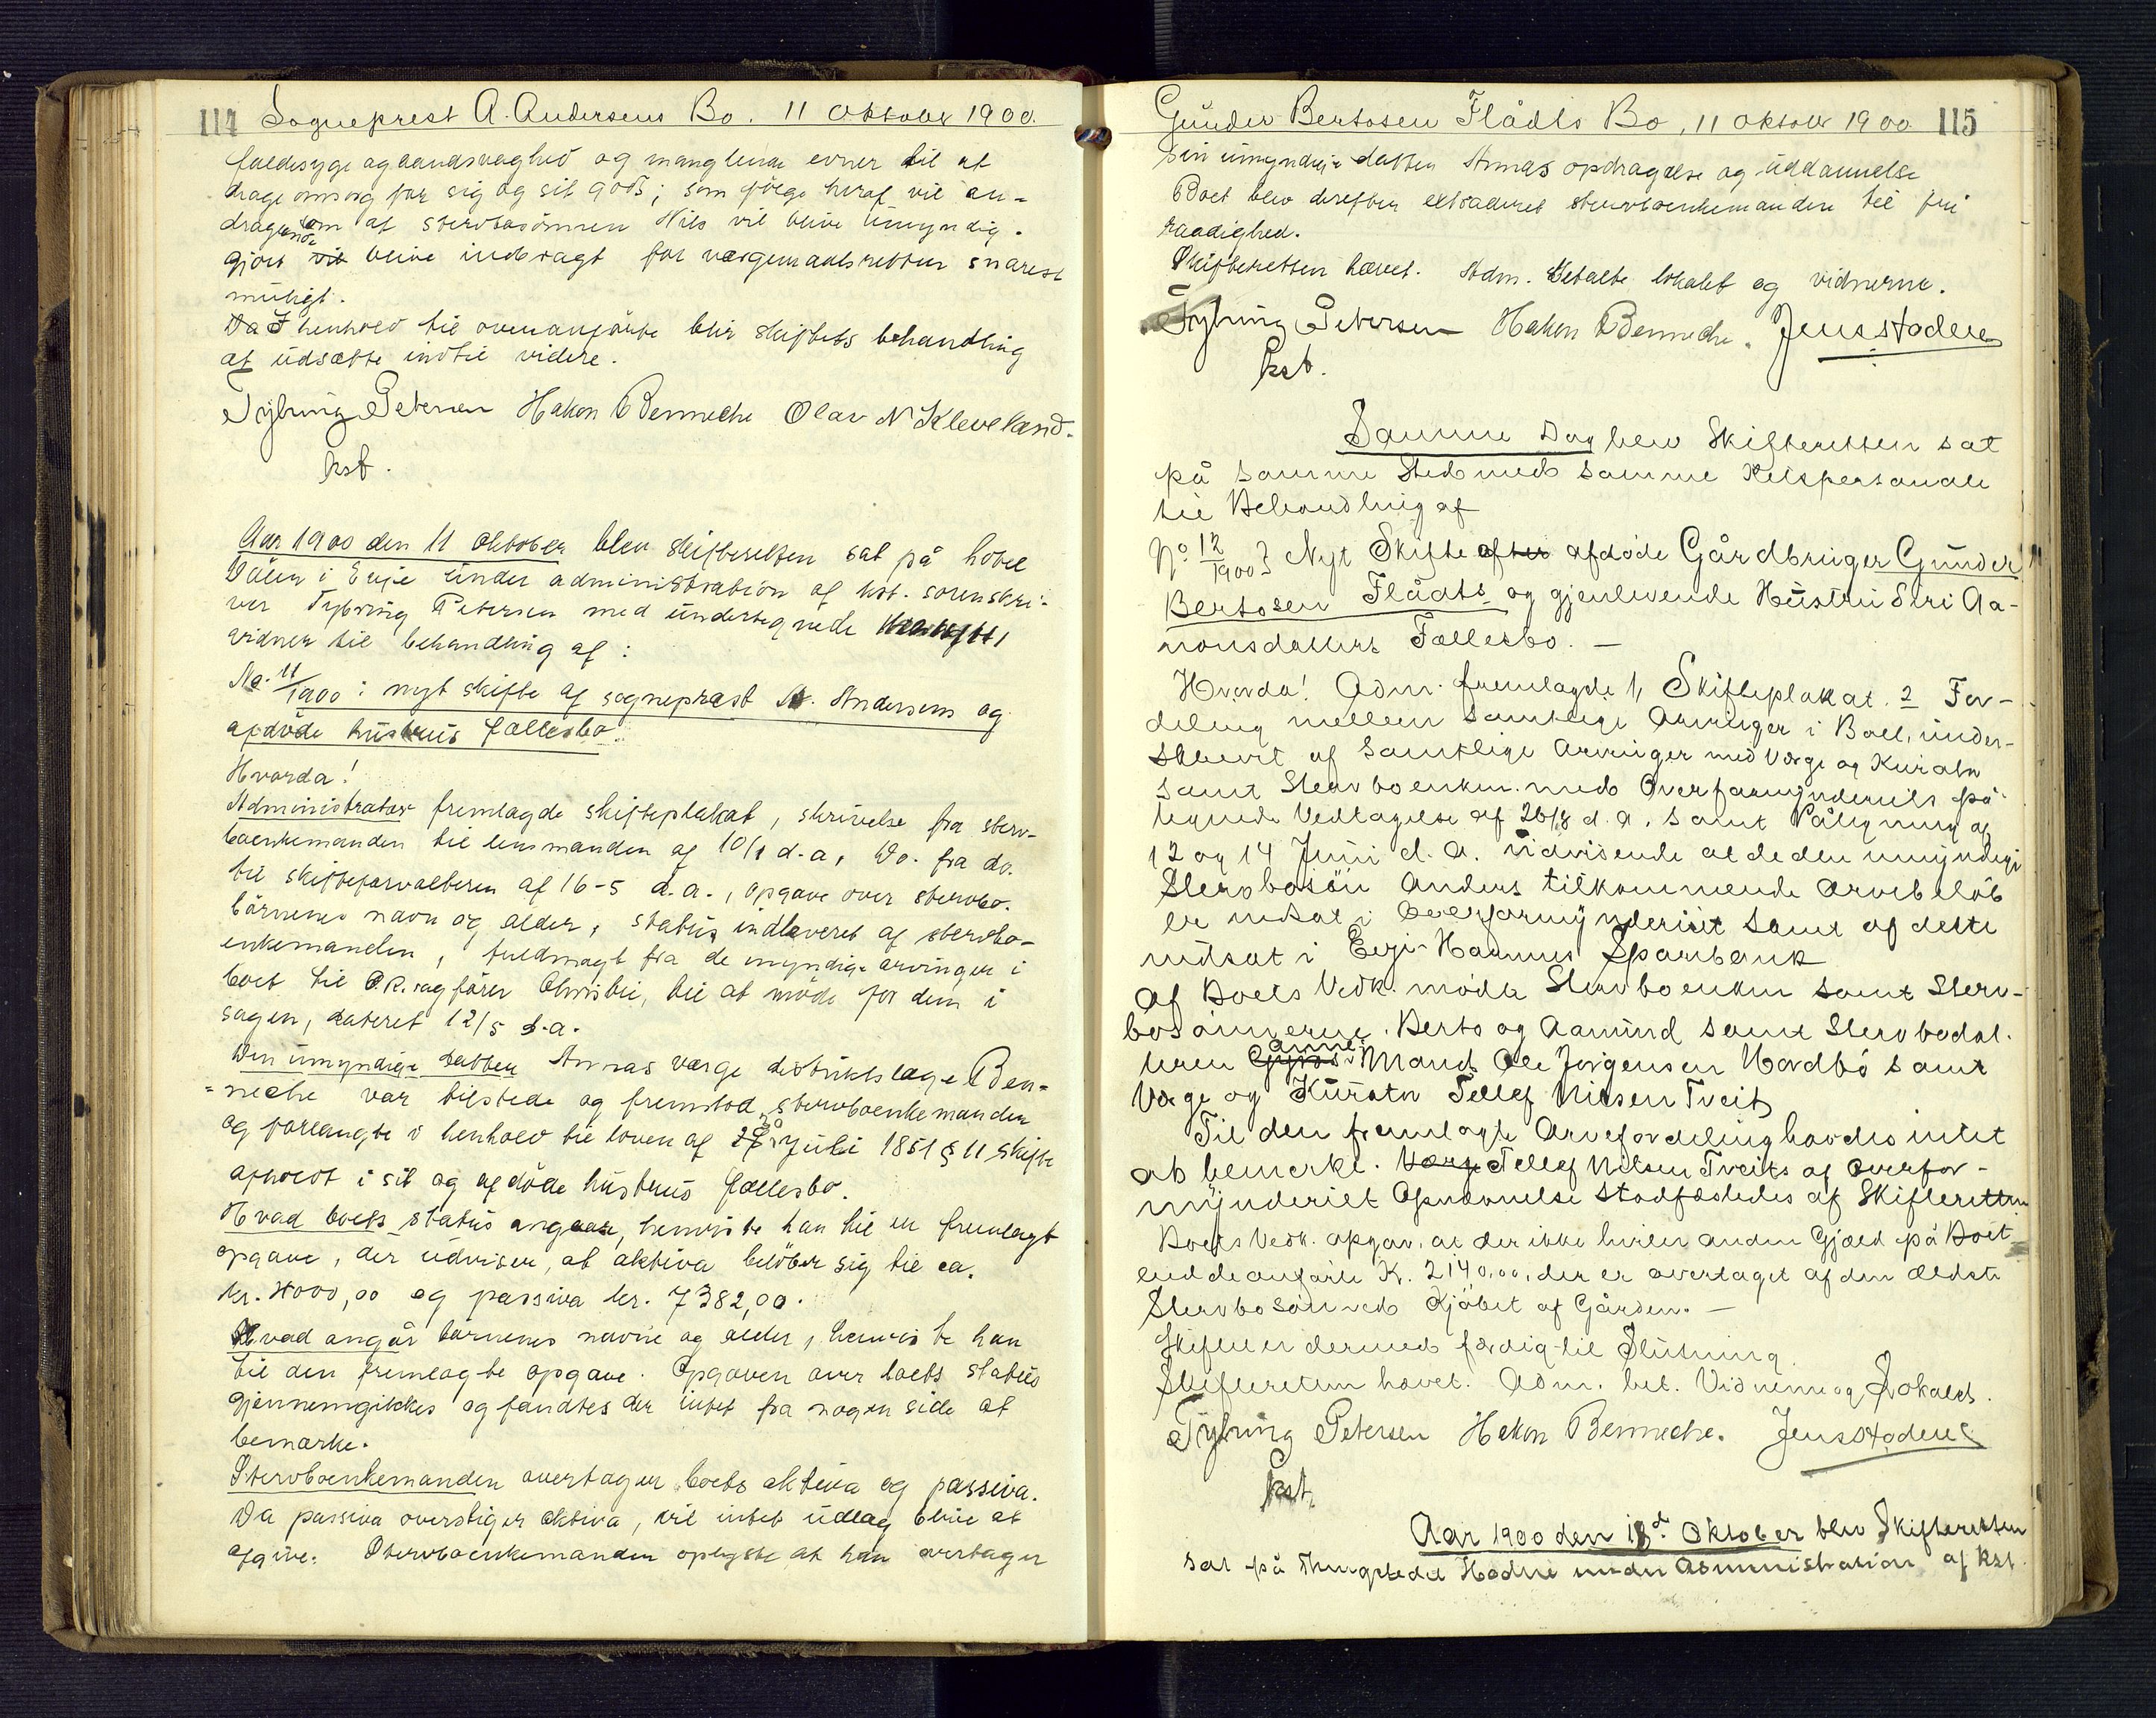 114 Sogneprest A. Andersens Bo. 11 Oktober 1900.
faldesyge og aandsvaghed og manglende evner til at
drage omsorg for sig og sit gods; som følge heraf vil an-
dragende om at stervbosønnen Nils vil blive umyndig-
gjort vil blive indbragt for værgemaalsretten snarest
muligt.
Da I henhold til ovenanførte blir skiftets behandling
at udsætte indtil videre.
Tybring Petersen Hakon Benneche Olav N Kleveland.
kst.
Aar 1900 den 11 Oktober blev skifteretten sat på hotel
Dålen i Evje under administration af kst. sorenskri-
ver Tybring Petersen med undertegnede
vidner til behandling af:
No. 11/1900: nyt skifte af sogneprest A. Andersens og
afdøde hustrus fællesbo.
Hvorda!
Administrator fremlagde skifteplakat, skrivelse fra sterv-
boenkemanden til lensmanden af 10/1 d.a., Do. fra do.
til skifteforvalteren af 16-5 d.a., opgave over stervbo-
børnenes navn og alder, status indleveret af stervbo-
enkemanden, fuldmagt fra de myndige arvinger i
boet til O.R.sagfører Christie, til at møde for dem i
sagen, dateret 12/5 d.a.
Den umyndige datter Annas værge distriktslæge Ben-
neche var tilstede og fremstod stervboenkemanden
og forlangte i henhold til loven af 30 Juli 1851 § 11 skifte
afholdt i sit og afdøde hustrus fællesbo.
Hvad boets status angaar, henviste han til en fremlagt
opgave, der udviser, at aktiva beløber sig til ca.
kr. 4000,00 og passiva kr. 7382,00.
Hvad angår børnenes navne og alder, henviste han
til den fremlagte opgave. Opgaven over boets status
gjennemgikkes og fandtes der intet fra nogen side at
bemærke.
Stervboenkemanden overtager boets aktiva og passiva.
Da passiva overstiger aktiva, vil intet udlæg blive at
afgive. Stervboenkemanden oplyste at han overtager
Gunder Bertosen Flådts Bo, 11 Oktober 1900. 115
sin umyndige datter Annas opdragelse og uddannelse
Boet blev derefter extraderet stervboenkemanden til fri
raadighed.
Skifteretten hævet. Adm. betalte lokalet og vidnerne.
Tybring Petersen Hakon Benneche. Jens Stadene
kst.
Samme Dag blev Skifteretten sat
på samme Sted med samme Retspersonale
til Behandling af
No 12/1900} Nyt Skifte after afdøde Gårdbruger Gunder
Bertosen Flådts og gjenlevende Hustru Siri Aa-
nonsdatters Fællesbo. —
Hvorda! Adm. fremlagde 1, Skifteplakat. 2 For-
deling mellem samtlige Arvinger i Boet, under-
skrevet af samtlige Arvinger med Værge og Kurator
samt Stervboenken med Overformynderiets på-
tegnede Vedtagelse af 26/8 d.A. samt Påtegning af
12 og 14 Juni d.A. udvisende at de den umyndige
Stervbosøn Anders tilkommende Arvebeløb
er indsat i Overformynderiet samt af dette
indsat i Evje-Hornnes Sparebank
Af Boets Vedk. mødte Stervboenken samt Sterv-
bosønnerne Berto og Aamund samt Stervbodat-
teren Gyros Anne's Mand Ole Jørgensen Hordbø samt
Værge og Kurator Tellef Nilsen Tveit
Til den fremlagte Arvefordeling havdes intet
at bemerke. Værge Tellef Nilsen Tveits af Overfor-
mynderiet Opnævnelse stadfæstedes af Skifteretten
Boets Vedk. opgav, at der ikke hviler anden Gjæld på Boet
end de anførte K. 2140,00, der er overtaget af den ældste
Stervbosøn ved Kjøbet af Gården. —
Skiftet er dermed færdig til Slutning.
Skifteretten hævet. Adm. bet. Vidnerne og Lokalet.
Tybring Petersen Hakon Benneche. Jens Stadene
kst.
Aar 1900 den 18d Oktober blev Skifteretten
sat på Thingstedet Hodne under Administration af Kst.